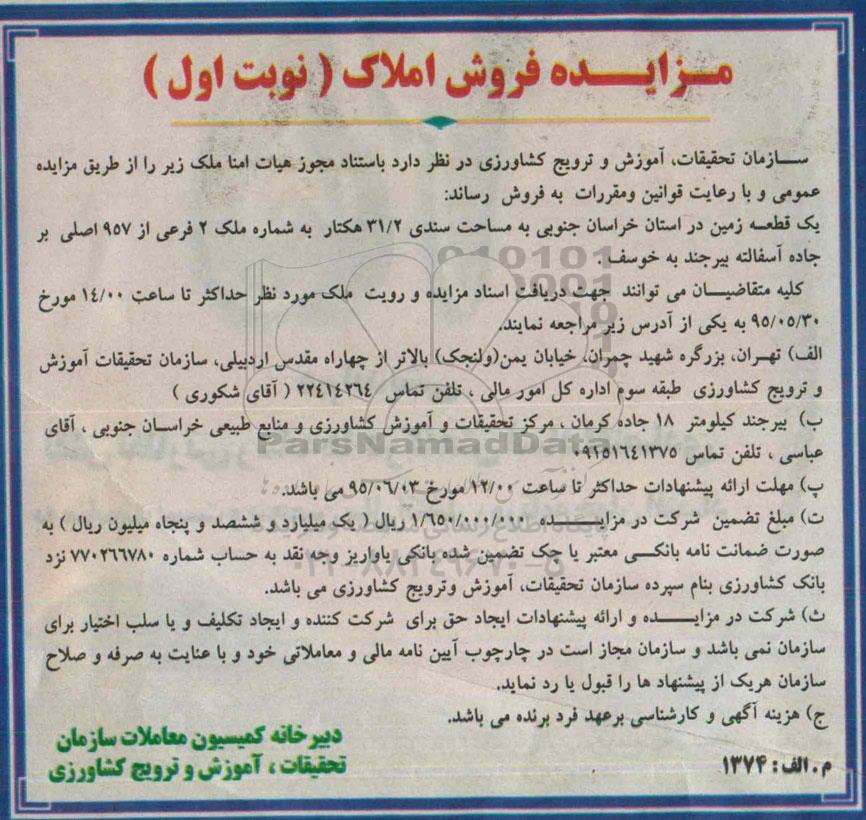 مزایده فروش املاک ( نوبت اول )
سازمان تحقیقات، آموزش و ترویج کشاورزی در نظر دارد باستناد مجوز هیات امنا ملک زیر را از طریق مزایده
عمومی و با رعایت قوانین ومقررات به فروش رساند:
یک قطعه زمین در استان خراسان جنوبی به مساحت سندی ۳۱/۲ هکتار به شماره ملک ۲ فرعی از ۹۵۷ اصلی بر
جاده آسفالته بیرجند به خوسف .
کلیه متقاضیان می توانند جهت دریافت اسناد مزایده و رویت ملک مورد نظر حداکثر تا ساعت ۱۴/۰۰ مورخ
۹۵/۰۵/۳۰ به یکی از آدرس زیر مراجعه نمایند.
الف) تهران، بزرگره شهید چمران، خیابان یمن(ولنجک) بالاتر از چهاراه مقدس اردبیلی، سازمان تحقیقات آموزش
و ترویج کشاورزی طبقه سوم اداره کل امور مالی ، تلفن تماس ۲۲۴۱۴۲۶۴ ( آقای شکوری )
ب) بیرجند کیلومتر ۱۸ جاده کرمان ، مرکز تحقیقات و آموزش کشاورزی و منابع طبیعی خراسان جنوبی ، آقای
ParsNamadData
عباسی ، تلفن تماس ۰۹۱۵۱۶۴۱۳۷۵
پ) مهلت ارائه پیشنهادات حداکثر تا ساعت ۱۲/۰۰ مورخ ۹۵/۰۶/۰۳ می باشد.
ت) مبلغ تضمین شرکت در مزایده ۱/۶۵۰/۰۰۰/۰۰۰ ریال ( یک میلیارد و ششصد و پنجاه میلیون ریال ) به
صورت ضمانت نامه بانکی معتبر یا چک تضمین شده بانکی یاواریز وجه نقد به حساب شماره ۷۷۰۲۶۶۷۸۰ نزد
بانک کشاورزی بنام سپرده سازمان تحقیقات، آموزش وترویج کشاورزی می باشد.
ث) شرکت در مزایده و ارائه پیشنهادات ایجاد حق برای شرکت کننده و ایجاد تکلیف و یا سلب اختیار برای
سازمان نمی باشد و سازمان مجاز است در چارچوب آیین نامه مالی و معاملاتی خود و با عنایت به صرفه و صلاح
سازمان هریک از پیشنهاد ها را قبول یا رد نماید.
ج) هزینه آگهی و کارشناسی برعهد فرد برنده می باشد.
دبیرخانه کمیسیون معاملات سازمان
تحقیقات ، آموزش و ترویج کشاورزی
م . الف : ۱۳۷۴